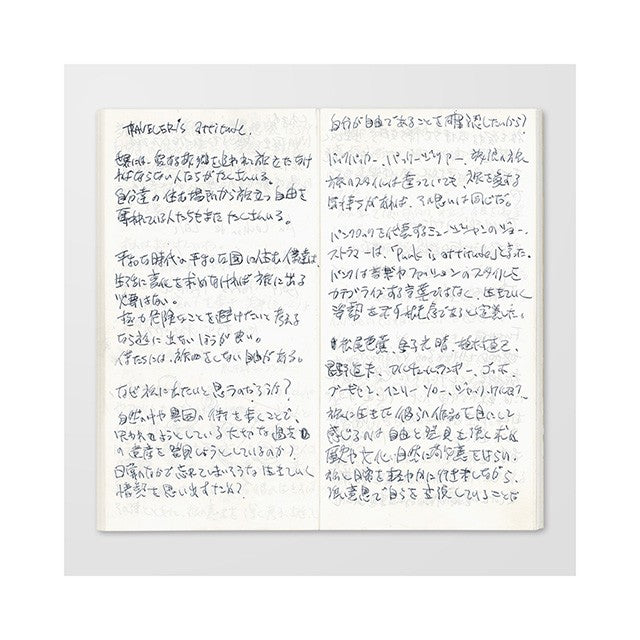 TRAVELER's attitude.
世の中には、愛する故郷を追われて旅立たなけ
ればならない人たちがたくさんいる。
自分達の住む場所から旅立つ自由を
奪われている人たちもまた たくさんいる。
平和な時代の平和な国に住む僕達は、
生活に変化を求めなければ 旅に出る
必要はない。
極力危険なことを避けたいと考える
なら旅に出ないほうが良い。
僕たちには、旅をしない自由がある。
なぜ旅に出たいと思うのだろうか?
自然の中や異国の街を歩くことで、
失われようとしている大切な過去
の遺産を発見しようとしているのか?
日常のなかで忘れてしまいそうな 生きていく
情熱を思い出すため?
自分が自由であることを確認したいから?
バックパッカー、パッケージツアー、
旅のスタイルは違っていても、旅を愛する
気持ちがあれば、その思いは同じだ。
パンクロックを代表するミュージシャンのジョー・
ストラマーは、「Punk is attitude」と言った。
パンクは音楽やファッションのスタイルを
カテゴライズする言葉ではなく、生きていく
姿勢を示す態度であると定義した。
松尾芭蕉、金子光晴、植村直己、
星野道夫、ヴィム・ヴェンダース、ゴッホ、
ゴーギャン、ヘンリー・ソロー、ジャック・ケルアック。
旅に生きた彼らの作品を目にして
感じるのは 自由と発見を強く求め
歴史や文化、自然に敬意をはらい、
旅と日常を軽やかに行き来しながら、
強い意思で自らを主張していることだ